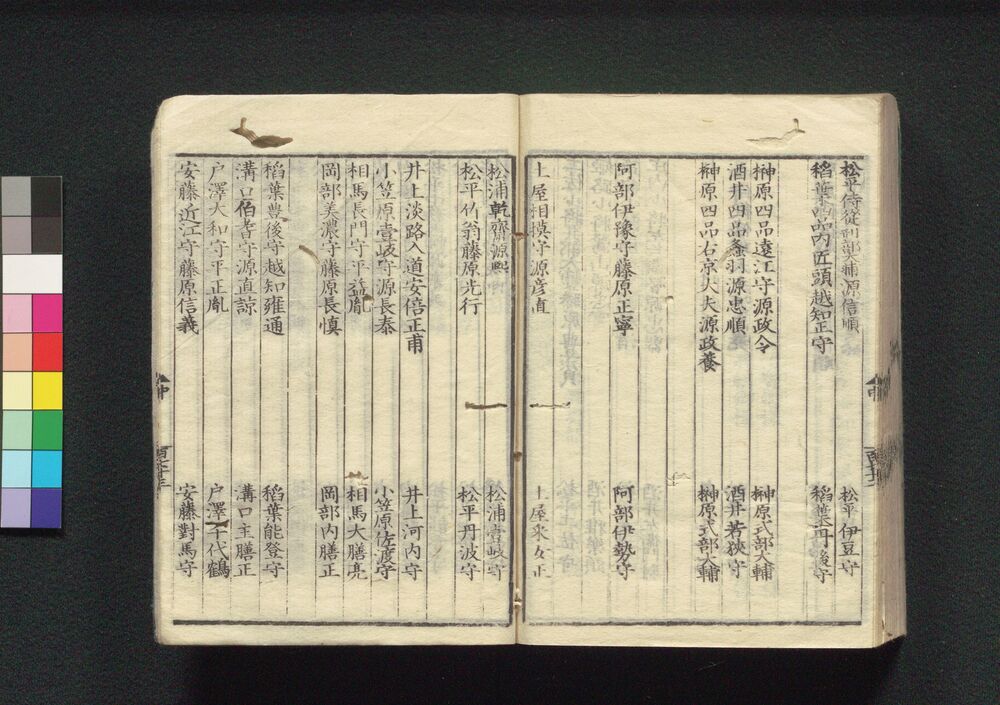 松平侍從刑部大輔源信順　松平伊豆守
稻葉四品内匠頭越知正守　稻葉丹後守
榊原四品遠江守源政令　榊原式部大輔
酒井四品源忠順　酒井若狹守
榊原四品右京大夫源政養　榊原式部大輔
阿部伊豫守藤原正寧　阿部伊勢守
土屋相模守源彦直　土屋采女正
松浦乾齋源熈　松浦壹岐守
松平竹翁藤原光行　松平丹波守
井上淡路入道安倍正甫　井上河内守
小笠原壹岐守源長泰　小笠原佐渡守
相馬長門守平益胤　相馬大膳亮
岡部美濃守藤原長慎　岡部内膳正
稻葉豊後守越知雍通　稻葉能登守
溝口伯耆守源直諒　溝口主膳正
戸澤大和守平正胤　戸澤千代鶴
安藤近江守藤原信義　安藤對馬守
中
中